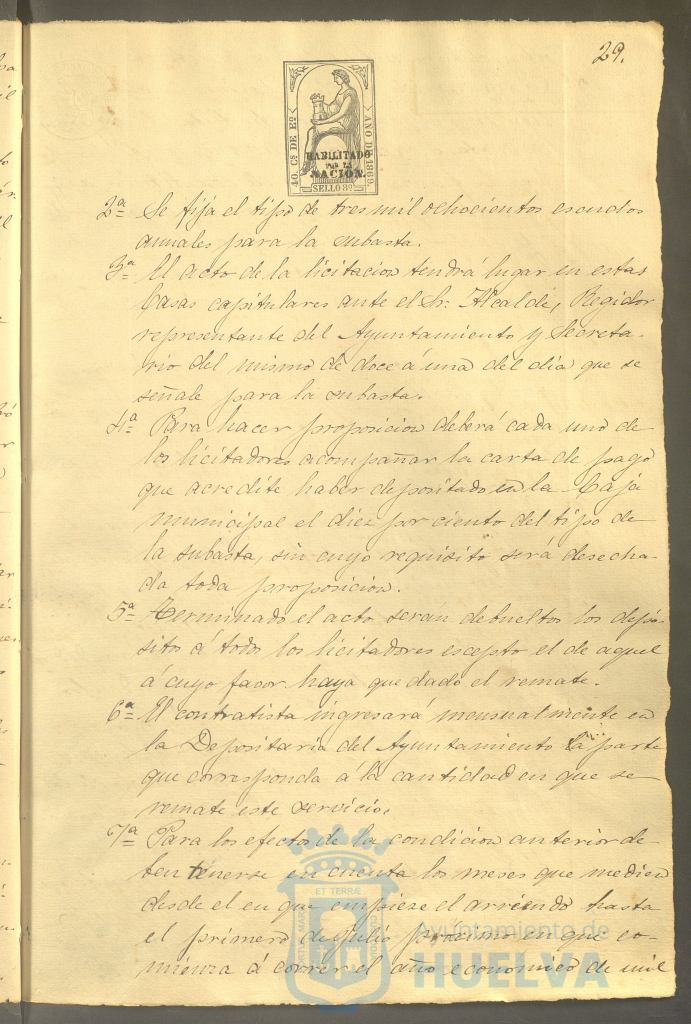 29.
40. Cs DE Eo
AÑO DE 1869.
HABILITADO
POR LA
NACION.
SELLO 8º
2ª Se fija el tipo de tres mil ochocientos escudos
anuales para la subasta.
3ª El acto de la licitacion tendrá lugar en estas
Casas capitulares ante el Sr. Alcalde, Regidor
representante del Ayuntamiento y Secreta-
rio del mismo de doce á una del dia que se
señale para la subasta.
4ª Para hacer proposicion deberá cada uno de
los licitadores acompañar la carta de pago
que acredite haber depositado en la Caja
municipal el diez por ciento del tipo de
la subasta, sin cuyo requisito será desecha-
da toda proposicion.
5ª Terminado el acto serán debueltos los depó-
sitos á todos los licitadores escepto el de aquel
á cuyo favor haya quedado el remate.
6ª El contratista ingresará mensualmente en
la Depositaria del Ayuntamiento la parte
que corresponda á la cantidad en que se
remate este servicio.
7ª Para los efectos de la condicion anterior de-
ben tenerse en cuenta los meses que medien
desde el en que empieze el arriendo hasta
el primero de julio próximo en que co-
mienza á correr el año economico de mil
ET TERRÆ
Ayuntamiento de
HUELVA